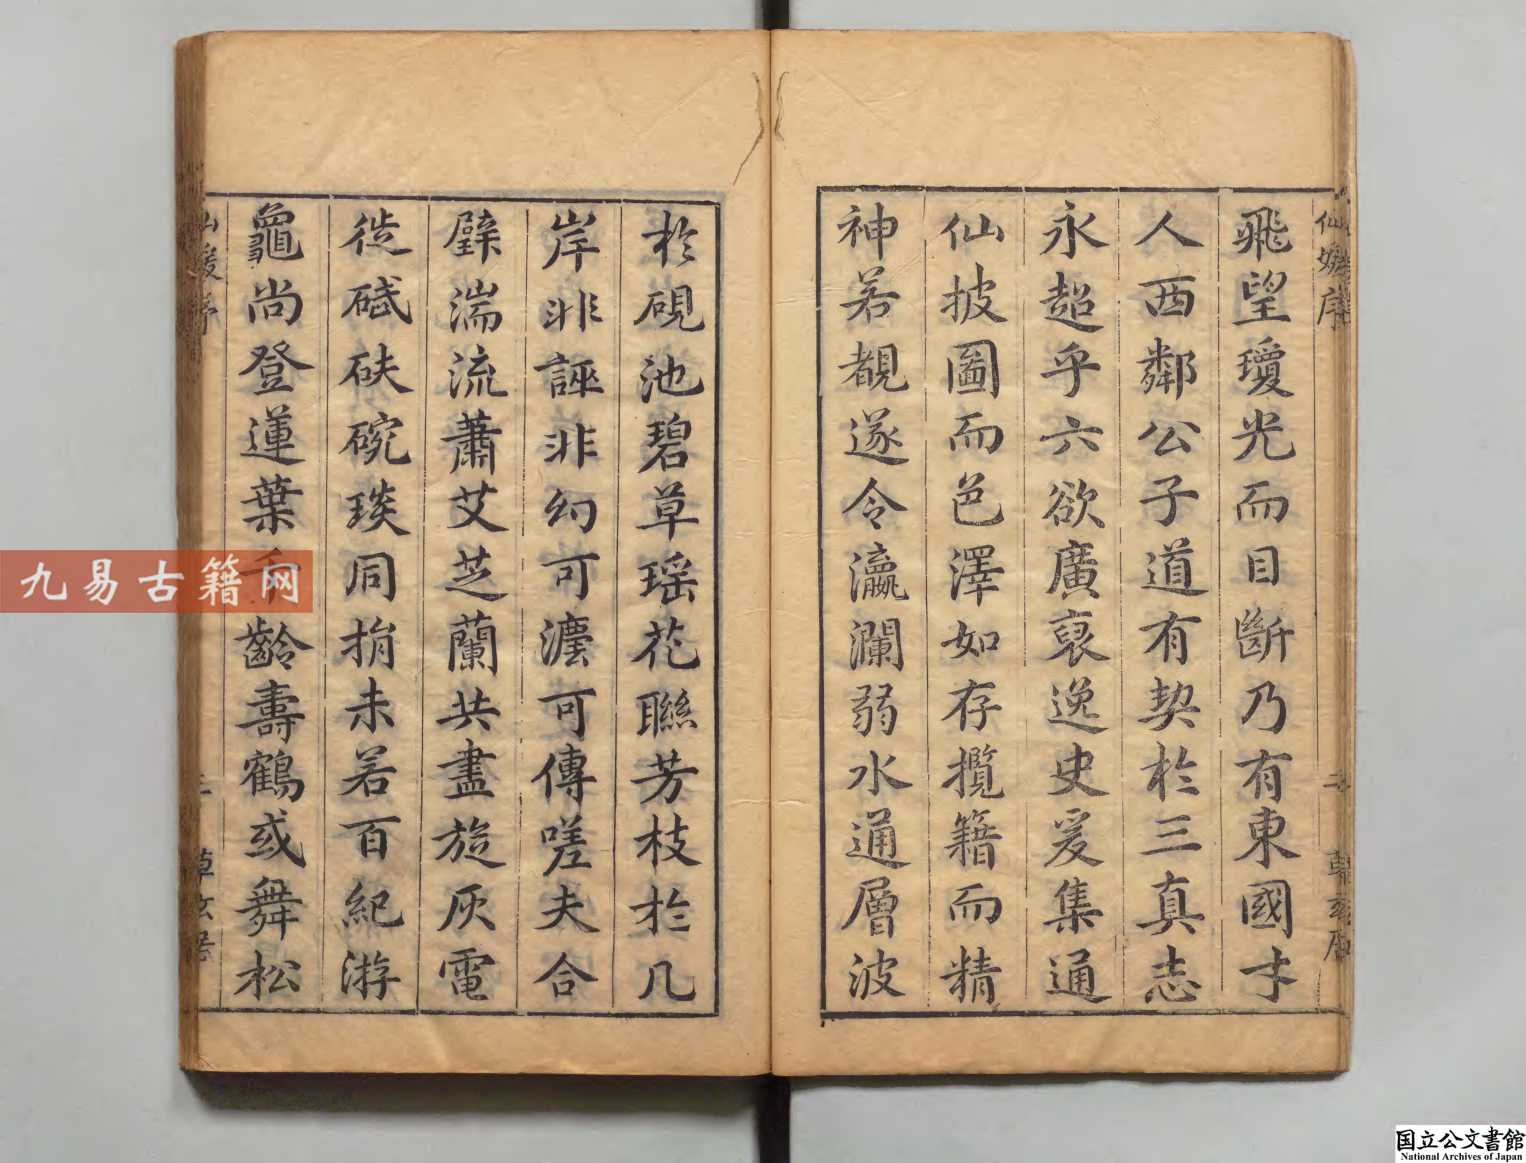 仙媛序
飛望瓊光而目斷乃有東國才
人西鄰公子道有契於三真志
永超乎六欲廣裒逸史爰集通
仙披圖而色澤如存攬籍而精
神若覩遂令瀛瀾弱水通層波
於硯池碧草瑶花聯芳枝於几
岸非誣非幻可漉可傳嗟夫合
璧湍流蕭艾芝蘭共盡旋灰電
徙碔砆琬琰同捐未若百紀游
龜尚登蓮葉千齡壽鶴或舞松
九易古籍网
国立公文書館
National Archives of Japan